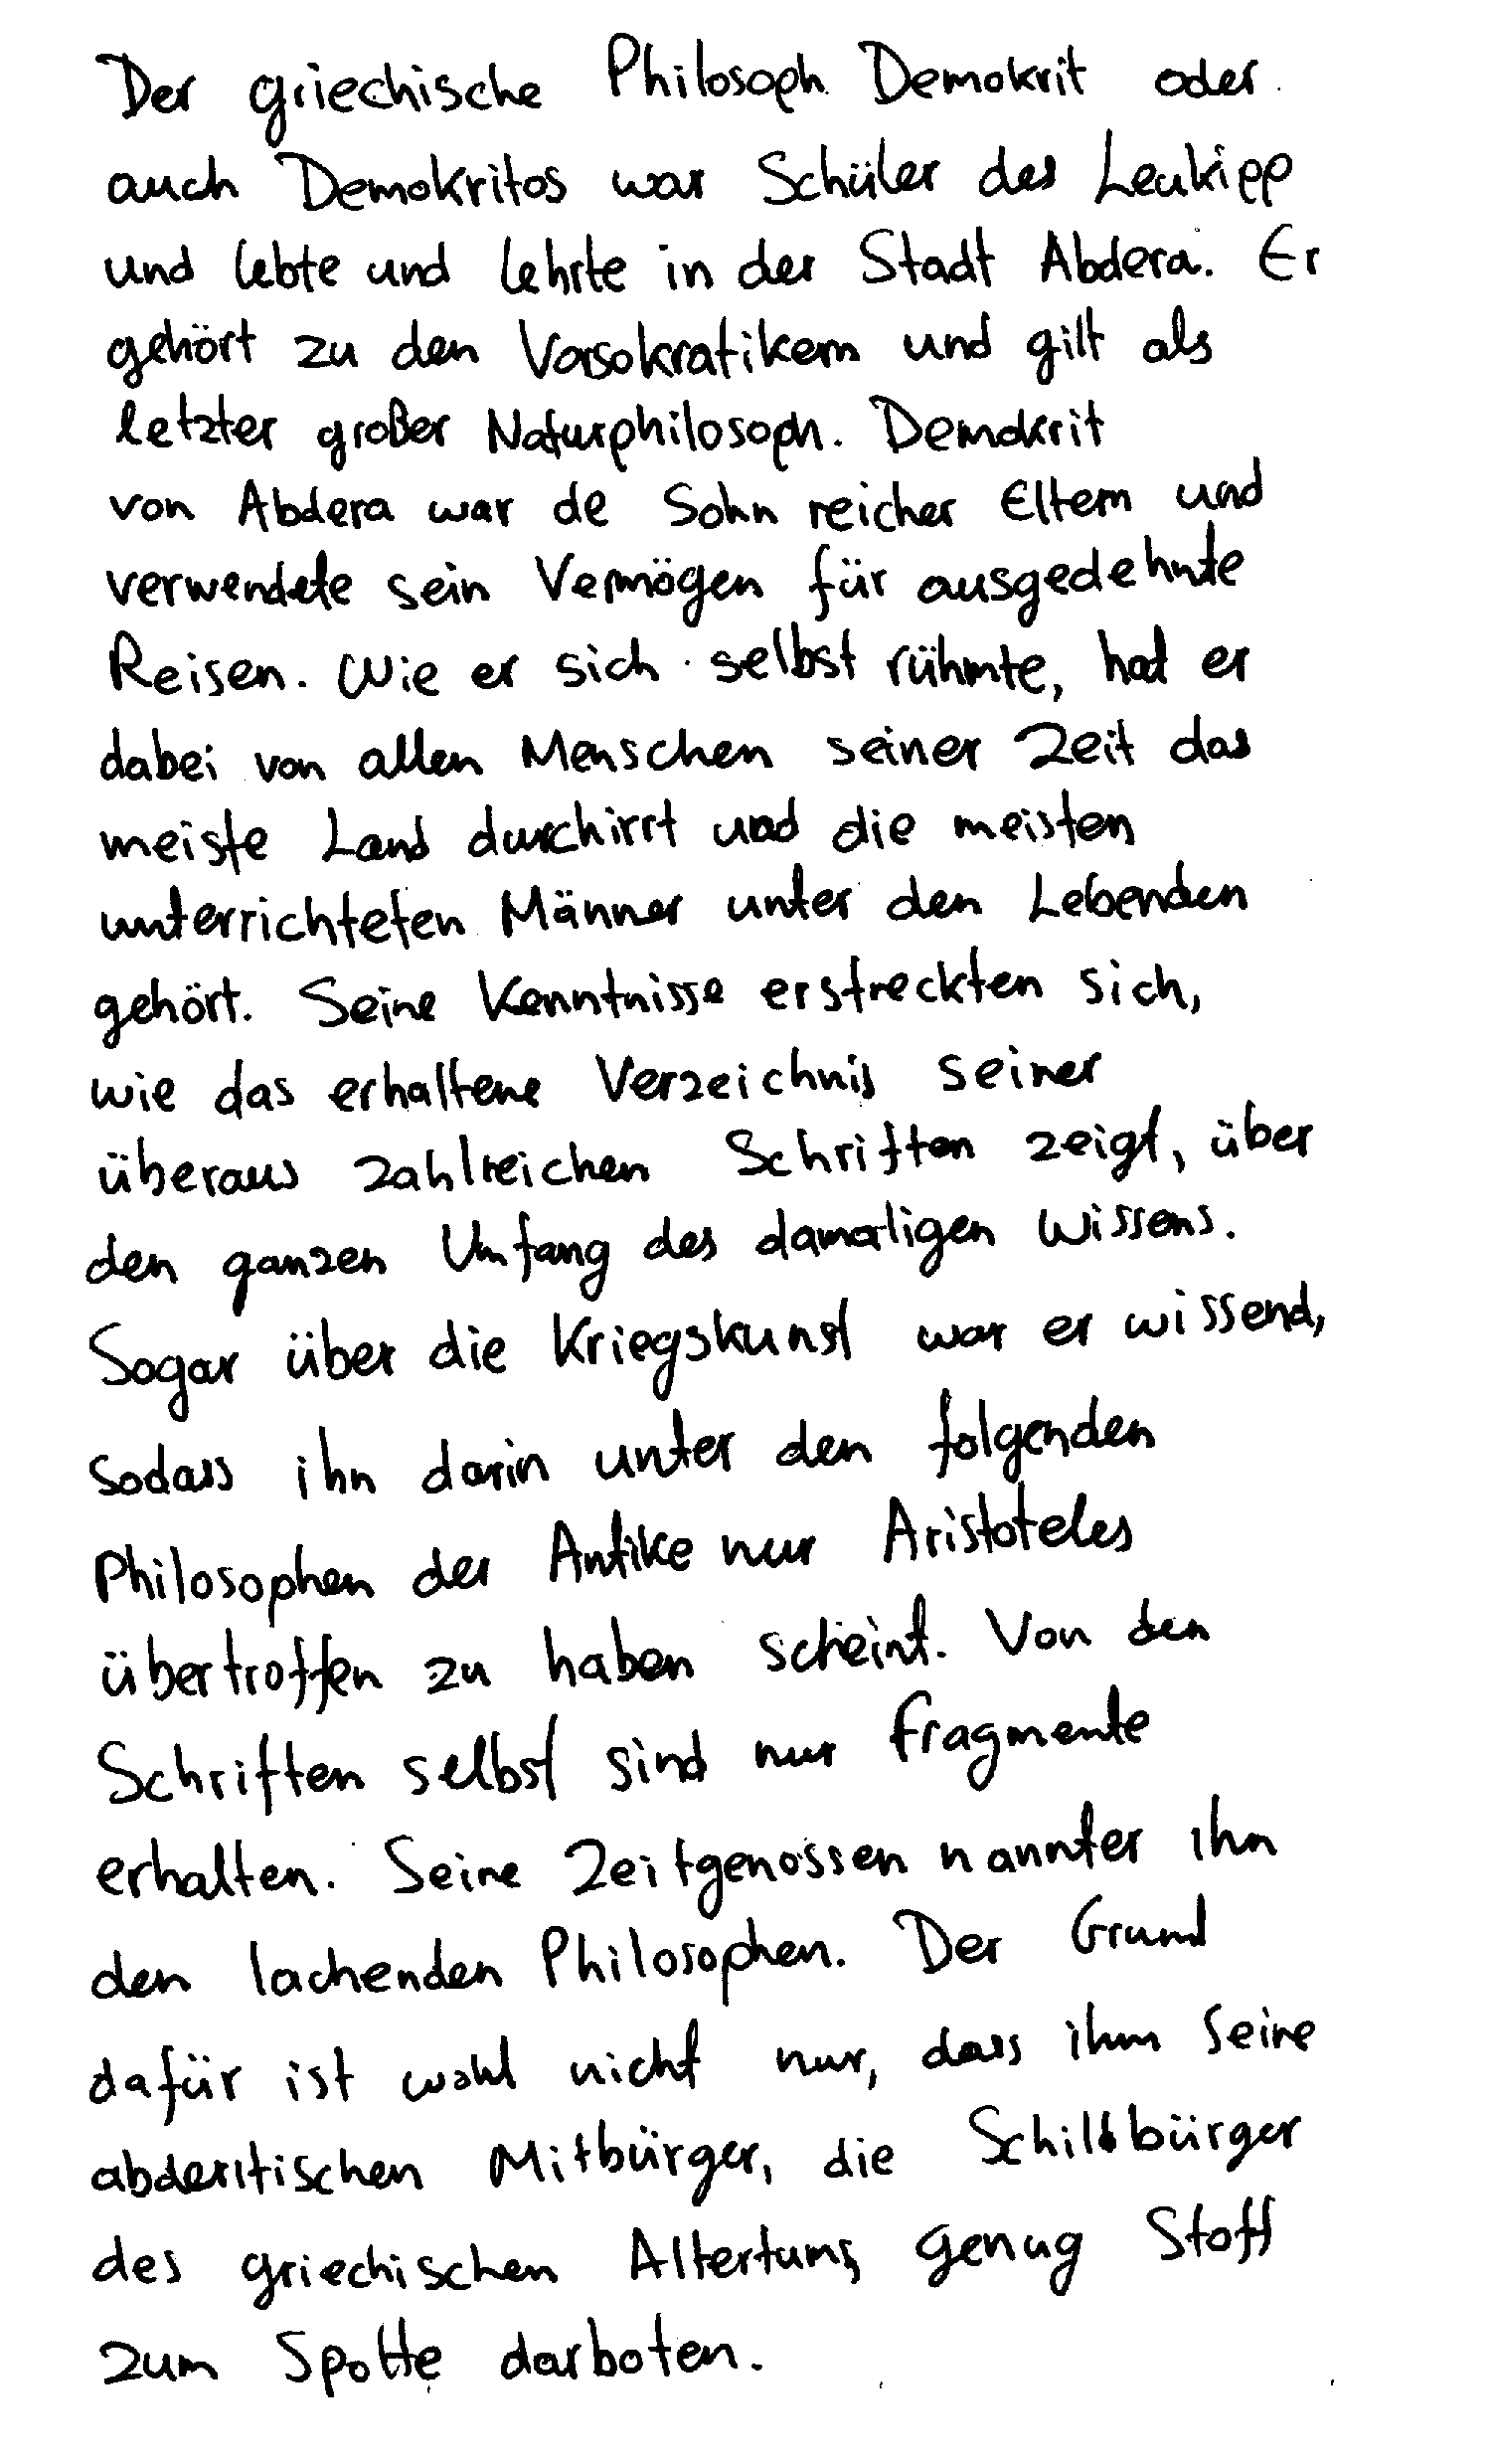 Der griechische Philosoph Demokrit oder
auch Demokritos war Schüler des Leukipp
und lebte und lehrte in der Stadt Abdera. Er
gehört zu den Vorsokratikern und gilt als
letzter großer Naturphilosoph. Demokrit
von Abdera war de Sohn reicher Eltern und
verwendete sein Vermögen für ausgedehnte
Reisen. Wie er sich selbst rühmte, hat er
dabei von allen Menschen seiner Zeit das
meiste Land durchirrt und die meisten
unterrichteten Männer unter den Lebenden
gehört. Seine Kenntnisse erstreckten sich,
wie das erhaltene Verzeichnis seiner
überaus zahlreichen Schriften zeigt, über
den ganzen Umfang des damaligen Wissens.
Sogar über die Kriegskunst war er wissend,
sodass ihn darin unter den folgenden
Philosophen der Antike nur Aristoteles
übertroffen zu haben scheint. Von den
Schriften selbst sind nur Fragmente
erhalten. Seine Zeitgenossen nannter ihn
den lachenden Philosophen. Der Grund
dafür ist wohl nicht nur, dass ihm seine
abderitischen Mitbürger, die Schildbürger
des griechischen Altertums, genug Stoff
zum Spotte darboten.